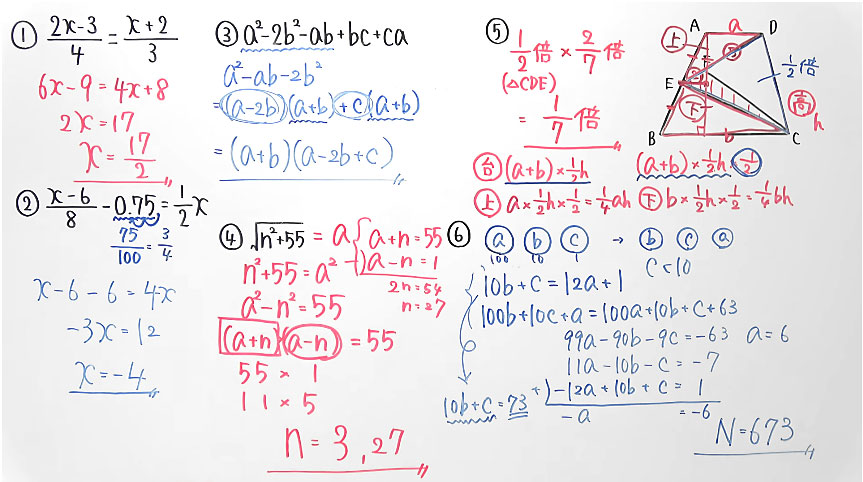 ① (2x-3)/4 = (x+2)/3
6x-9=4x+8
2x=17
x=17/2
② (x-6)/8 - 0.75 = 1/2 x
75/100 = 3/4
x-6-6=4x
-3x=12
x=-4
③ a²-2b²-ab+bc+ca
a²-ab-2b²
=(a-2b)(a+b)+c(a+b)
=(a+b)(a-2b+c)
④ √(n²+55) = a
n²+55=a²
a²-n²=55
(a+n)(a-n)=55
55×1
11×5
a+n=55
-) a-n=1
2n=54
n=27
n=3,27
⑤ 1/2倍×2/7倍
(△CDE)
=1/7倍
A a D
上
E
下
B b C
1/2倍
高 h
台 (a+b)×1/2h
(a+b)×1/2h×1/2
上 a×1/2h×1/2=1/4ah
下 b×1/2h×1/2=1/4bh
⑥ a b c → b c a
100 10 1
c<10
10b+c=12a+1
100b+10c+a=100a+10b+c+63
99a-90b-9c=-63
a=6
11a-10b-c=-7
+) -12a+10b+c=1
-a =-6
10b+c=73
N=673